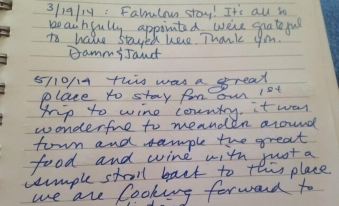 3/19/14: Fabulous stay! It's all so
beautifully appointed. We're grateful
to have stayed here. Thank you.
Damon & Janet
5/10/14 This was a great
place to stay for our 1st
trip to wine country. it was
wonderful to meander around
town and sample the great
food and wine with just a
simple stroll back to this place
we are looking forward to